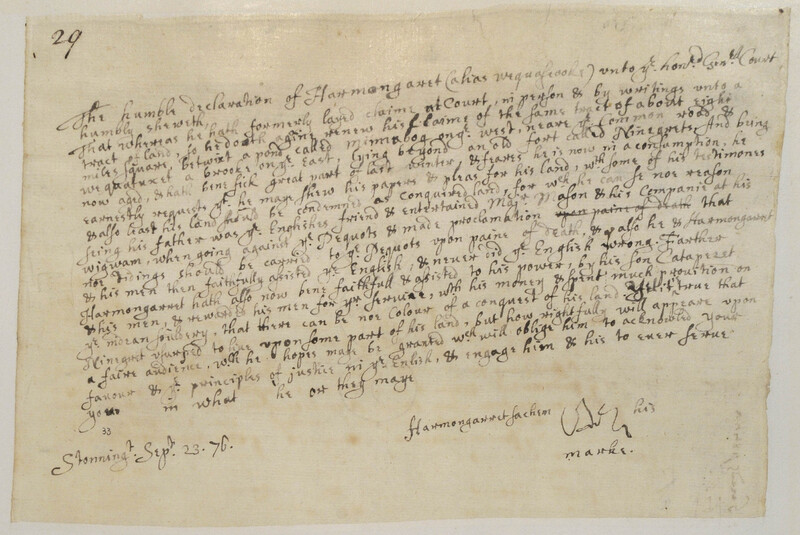 29
The humble declaration of Harmongaret (alias wequascooke) vnto ye. honrd. Genrll Court
humbly sheweth.
That whereas he hath formerly layed claime at Court, in person & by writings vnto a
tract of land, so he doth againe renew his Claime of the same tract of about eight
miles square, betwixt a pond called minnabog on ye. west, neare ye. Common road, &
wequatuxet a brooke on ye. east, lying beyond an old fort called Ninegrets, And being
now aged, & hath bene sick great part of last winter, & feares he is now in a consumption, he
earnestly requests ye. he may shew his papers & pleas for his land, wth some of his testimones
& also least his land should be condemned as conquered land, for wch he can se nor reason
seing his father was ye. Englishes friend & entertained Majr. Mason & his Companie at his
wigwam, when going against ye. Pequots & made proclamation upon paine of death that
nor tidings should be carried to ye Pequots vpon paine of death, & also he & Harmongarret
& his men then faithfully assisted ye. English, & never did ye. English wrong. Farther
Harmongarret hath also now bene faithfull & assisted to his power, by his son Catapezet
& his men, & rewarded his men for yr service, wth his money & spent much prouition on
ye. mocan souldery, that there can be nor Colour of a conquest of his land yet it is true that
Ninegret vsurped to liue vpon some part of his land, but how rightfully will appeare vpon
a faire audience, wch he hopes may be granted wch will oblige him to acknowled your
favour & ye. principles of justice in ye. Enlish, & engage him & his to ever serve
you in what he or they maye
33
Harmongarret sachem his
marke.
Stonningt. Sept. 23. 76.